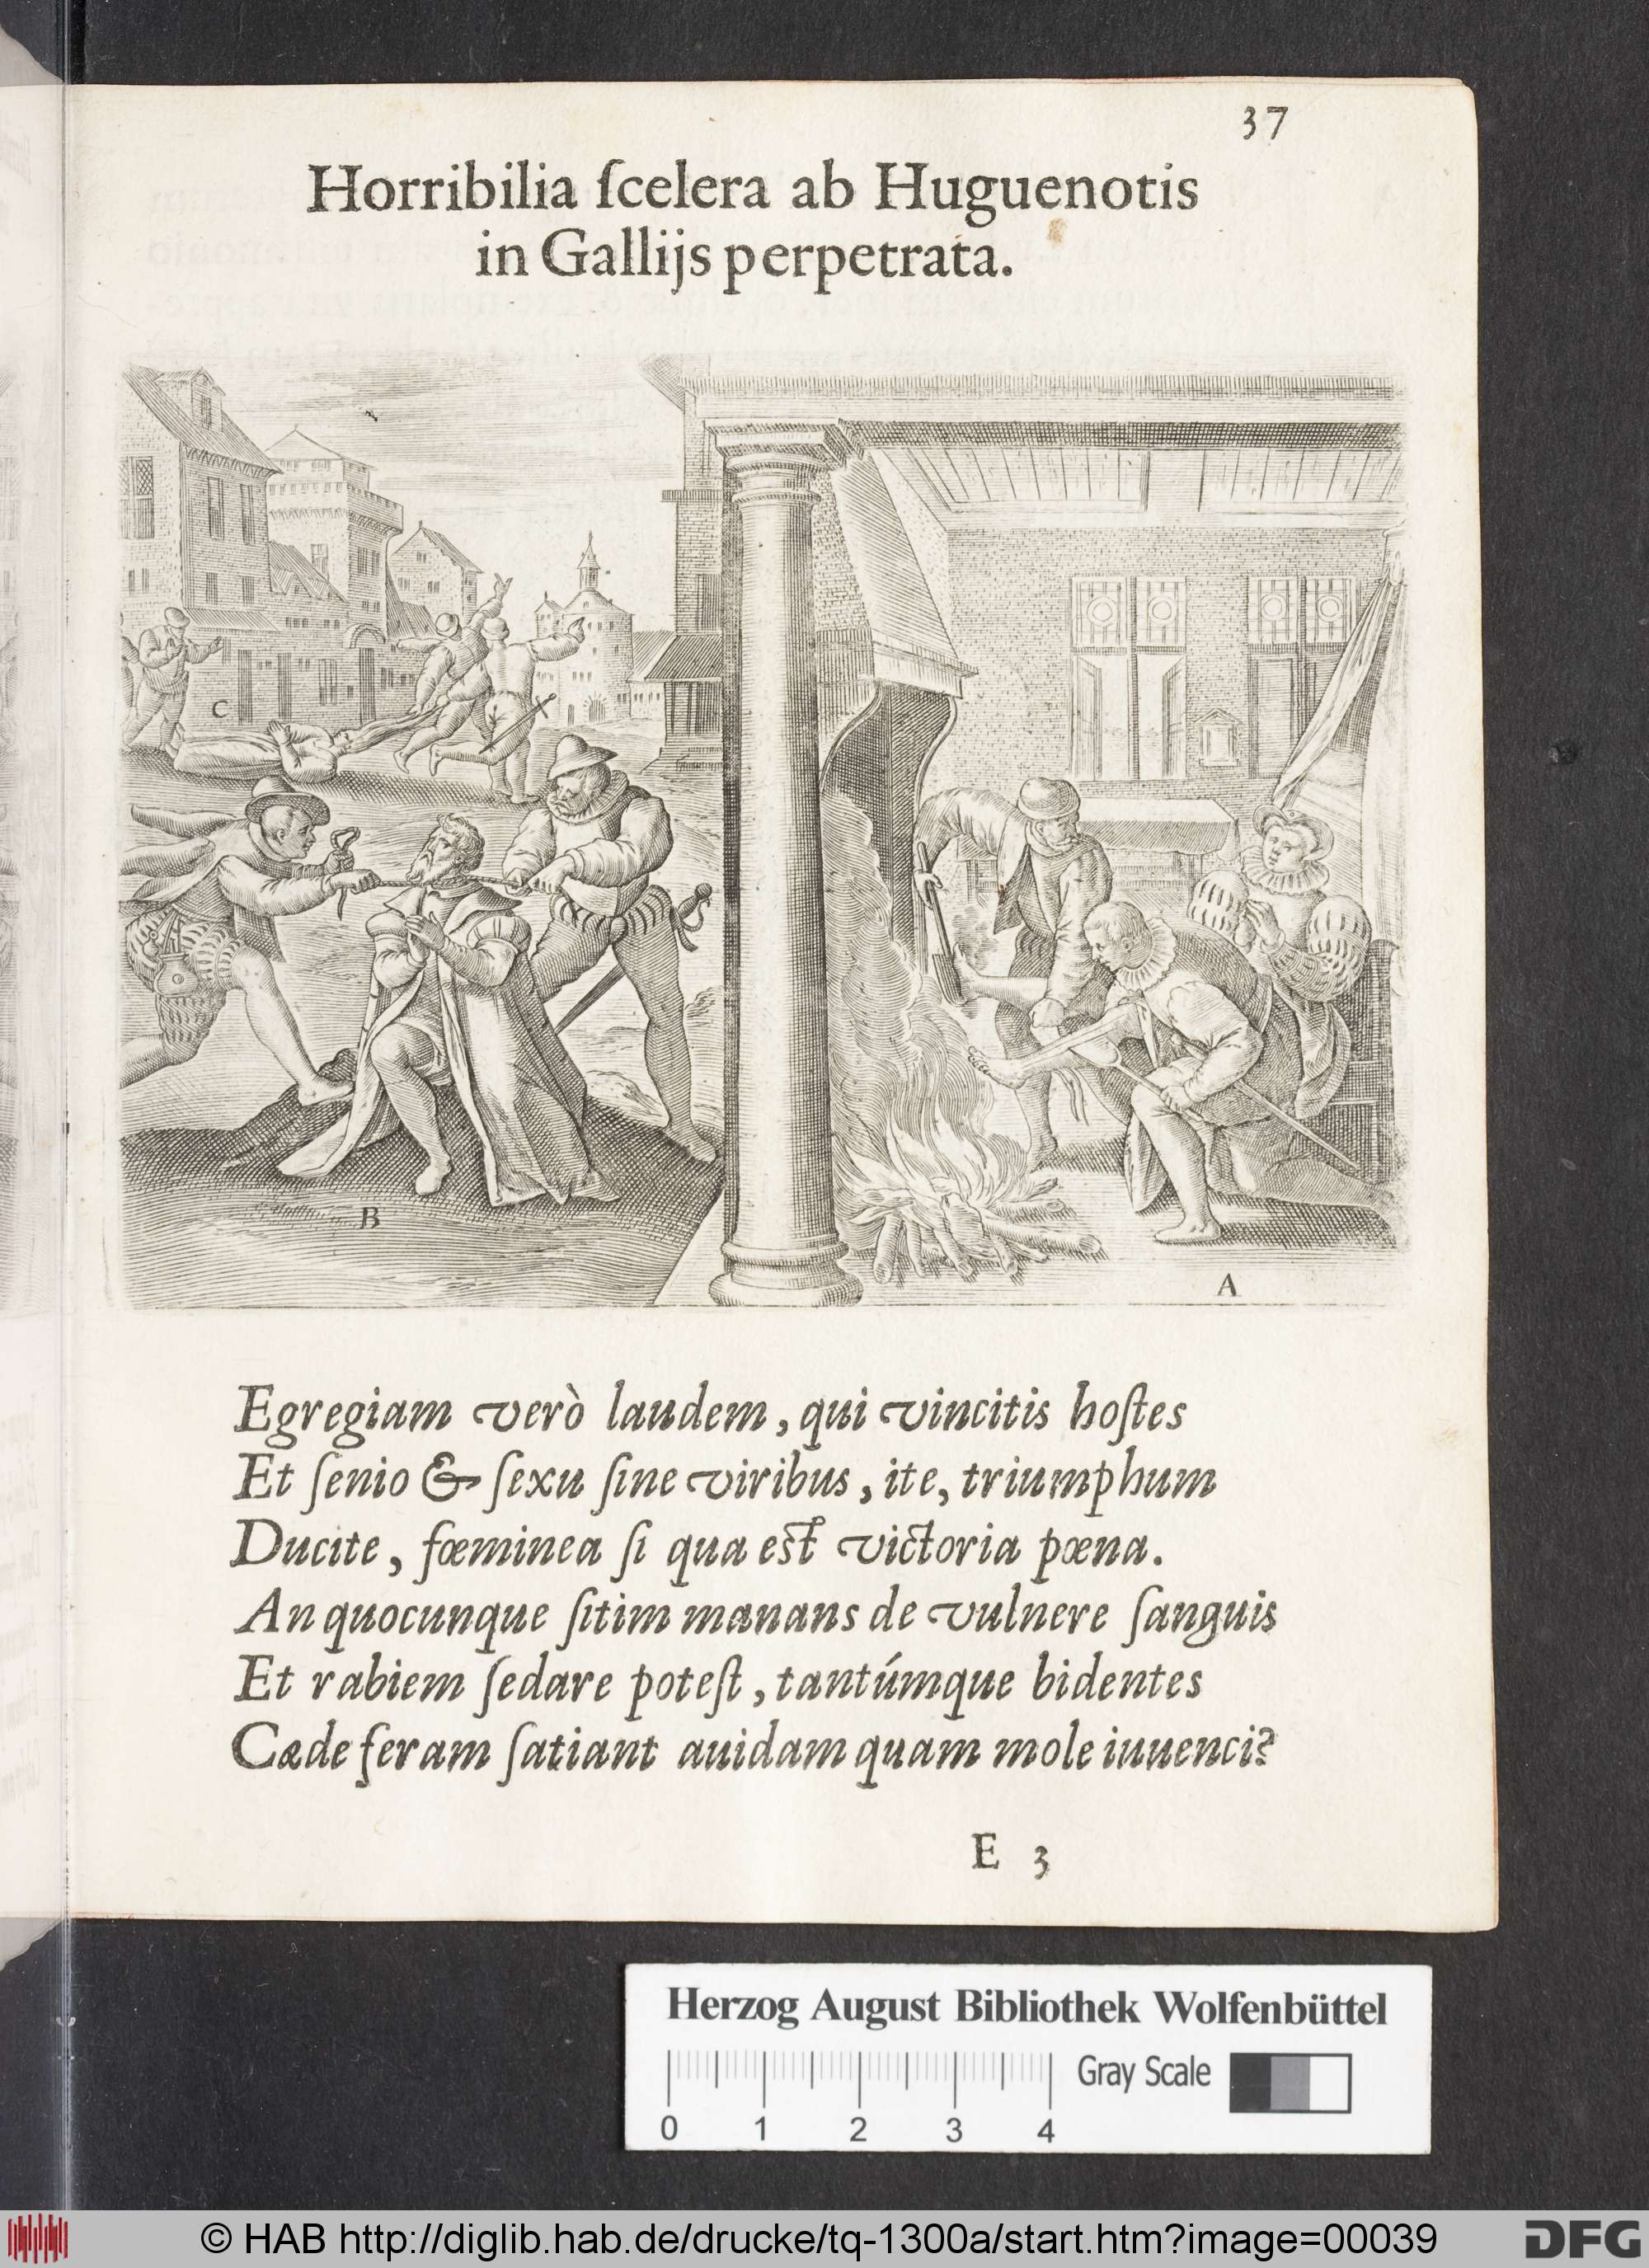 37
Horribilia ſcelera ab Huguenotis
in Gallijs perpetrata.
C
B
A
Egregiam verò laudem, qui vincitis hoſtes
Et ſenio & ſexu ſine viribus, ite, triumphum
Ducite, fœminea ſi qua est victoria pœna.
An quocunque ſitim manans de vulnere ſanguis
Et rabiem ſedare poteſt, tantúmque bidentes
Cæde feram ſatiant auidam quam mole iuuenci?
E 3
Herzog August Bibliothek Wolfenbüttel
Gray Scale
0 1 2 3 4
© HAB http://diglib.hab.de/drucke/tq-1300a/start.htm?image=00039
DFG